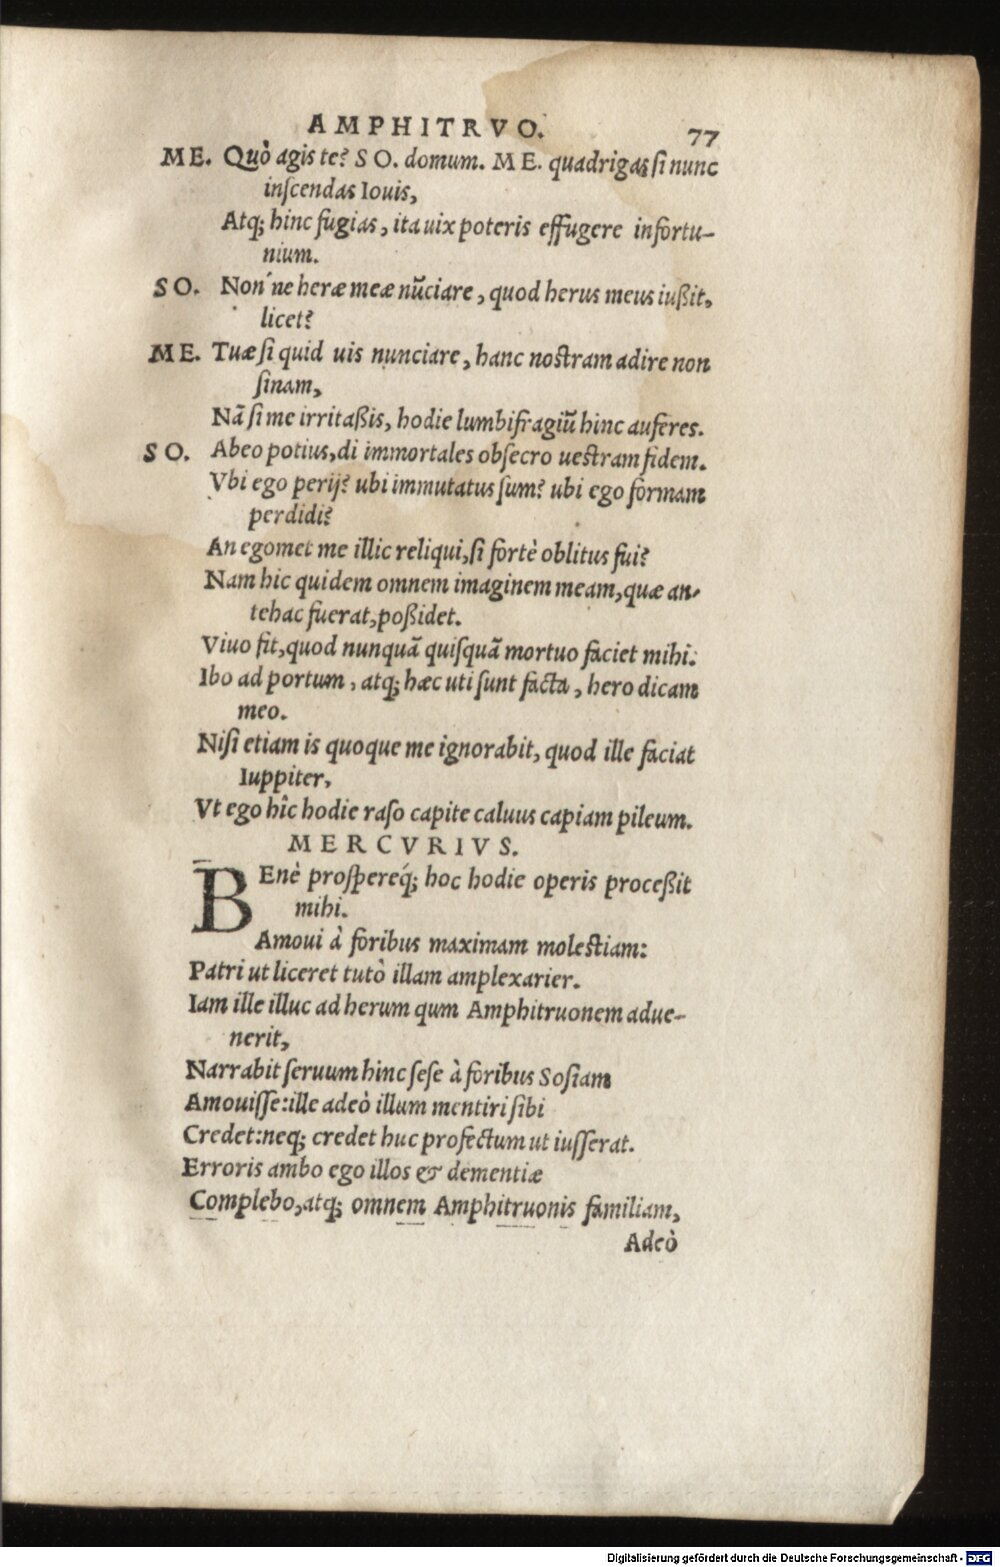 AMPHITRVO. 77
ME. Quò agis te? SO. domum. ME. quadrigas si nunc
inscendas Iouis,
Atq; hinc fugias, ita uix poteris effugere infortu-
nium.
SO. Non'ne heræ meæ nūciare, quod herus meus iußit,
licet?
ME. Tuæ si quid uis nunciare, hanc nostram adire non
sinam,
Nā si me irritaßis, hodie lumbifragiū hinc auferes.
SO. Abeo potius, di immortales obsecro uestram fidem.
Vbi ego perij? ubi immutatus sum? ubi ego formam
perdidi?
An egomet me illic reliqui, si fortè oblitus fui?
Nam hic quidem omnem imaginem meam, quæ an-
tehac fuerat, poßidet.
Viuo fit, quod nunquā quisquā mortuo faciet mihi.
Ibo ad portum, atq; hæc uti sunt facta, hero dicam
meo.
Nisi etiam is quoque me ignorabit, quod ille faciat
Iuppiter,
Vt ego hîc hodie raso capite caluus capiam pileum.
MERCVRIVS.
BEnè prospereq́; hoc hodie operis proceßit
mihi.
Amoui à foribus maximam molestiam:
Patri ut liceret tutò illam amplexarier.
Iam ille illuc ad herum qum Amphitruonem adue-
nerit,
Narrabit seruum hinc sese à foribus Sosiam
Amouisse: ille adeò illum mentiri sibi
Credet: neq; credet huc profectum ut iusserat.
Erroris ambo ego illos & dementiæ
Complebo, atq; omnem Amphitruonis familiam,
Adeò
Digitalisierung gefördert durch die Deutsche Forschungsgemeinschaft - DFG